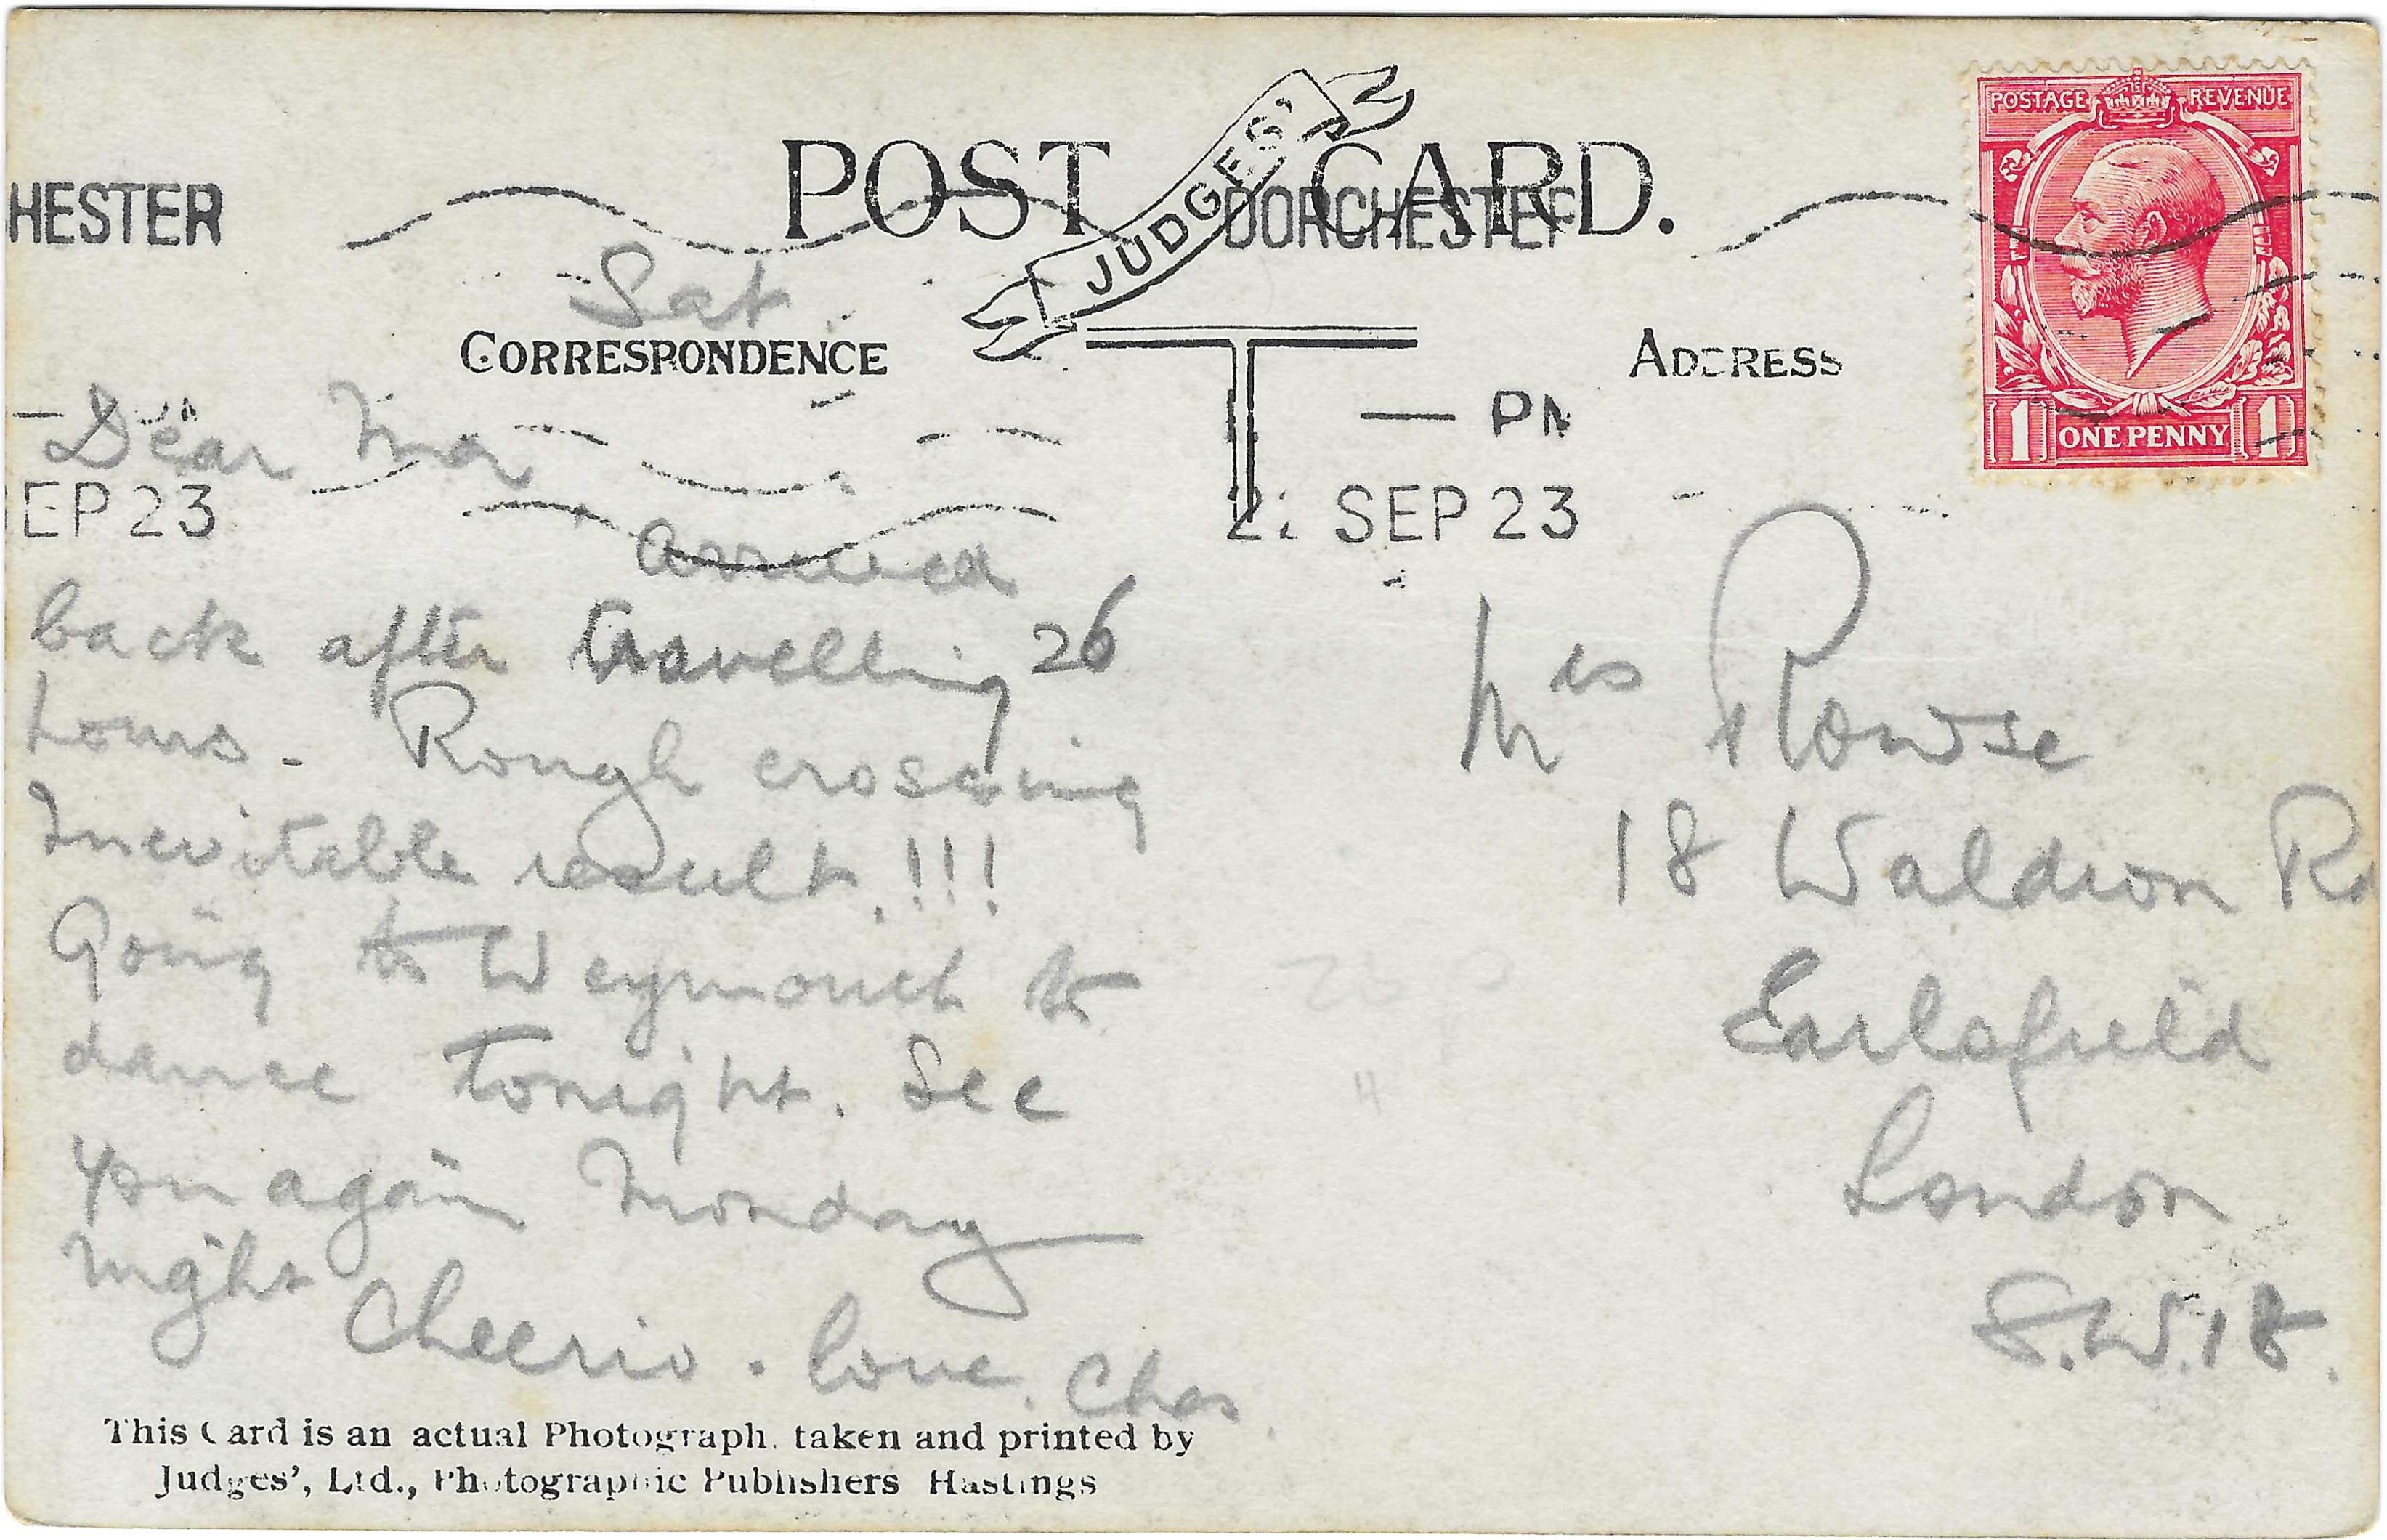 POST CARD.
JUDGES'
POSTAGE REVENUE
1 ONE PENNY 1
HESTER
DORCHESTER
PM
EP 23
SEP 23
CORRESPONDENCE
ADDRESS
Sat
Dear Ma
arrived
back after travelling 26
hours - Rough crossing
Inevitable result!!!
Going to Weymouth to
dance tonight. See
you again Monday
night Cheerio. love. Chas
Mrs Rowse
18 Waldron Rd
Earlsfield
London
S.W.18.
This Card is an actual Photograph, taken and printed by
Judges', Ltd., Photographic Publishers Hastings